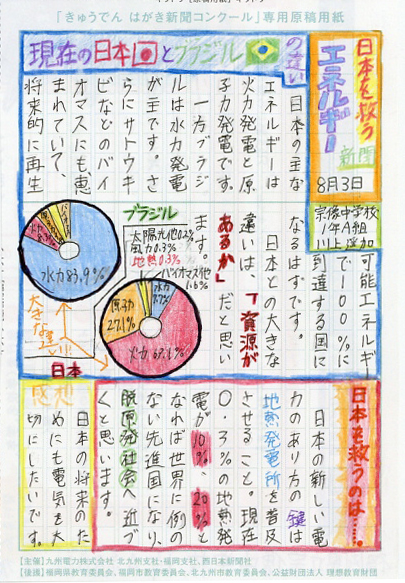 「きゅうでん はがき新聞コンクール」専用原稿用紙
日本を救う
エネルギー
新聞
8月3日
宗像中学校
1年A組
川上
現在の日本とブラジル
の違い
日本の主な
エネルギーは
火力発電と原
子力発電です。
一方ブラジ
ルは水力発電
が主です。さ
らにサトウキ
ビなどのバイ
オマスにも恵
まれていて、
将来的に再生
可能エネルギー
で100%に
到達する国に
なるはずです。
日本との大きな
違いは、「資源が
あるか」だと思い
ます。
ブラジル
水力83.9%
太陽光他0.2%
風力0.3%
地熱0.3%
バイオマス他
1.6%
水力
原子力
27.1%
火力
日本
大きな
違い!!
日本を救うのは……。
日本の新しい電
力のあり方の鍵は
地熱発電所を普及
させること。現在
0.3%の地熱発
電が10%、20%と
なれば世界に例の
ない先進国になり、
脱原発社会へ近づ
くと思います。
感想
日本の将来のた
めにも電気を大
切にしたいです。
【主催】九州電力株式会社 北九州支社・福岡支社、西日本新聞社
【後援】福岡県教育委員会、福岡市教育委員会、北九州市教育委員会、公益財団法人 理想教育財団